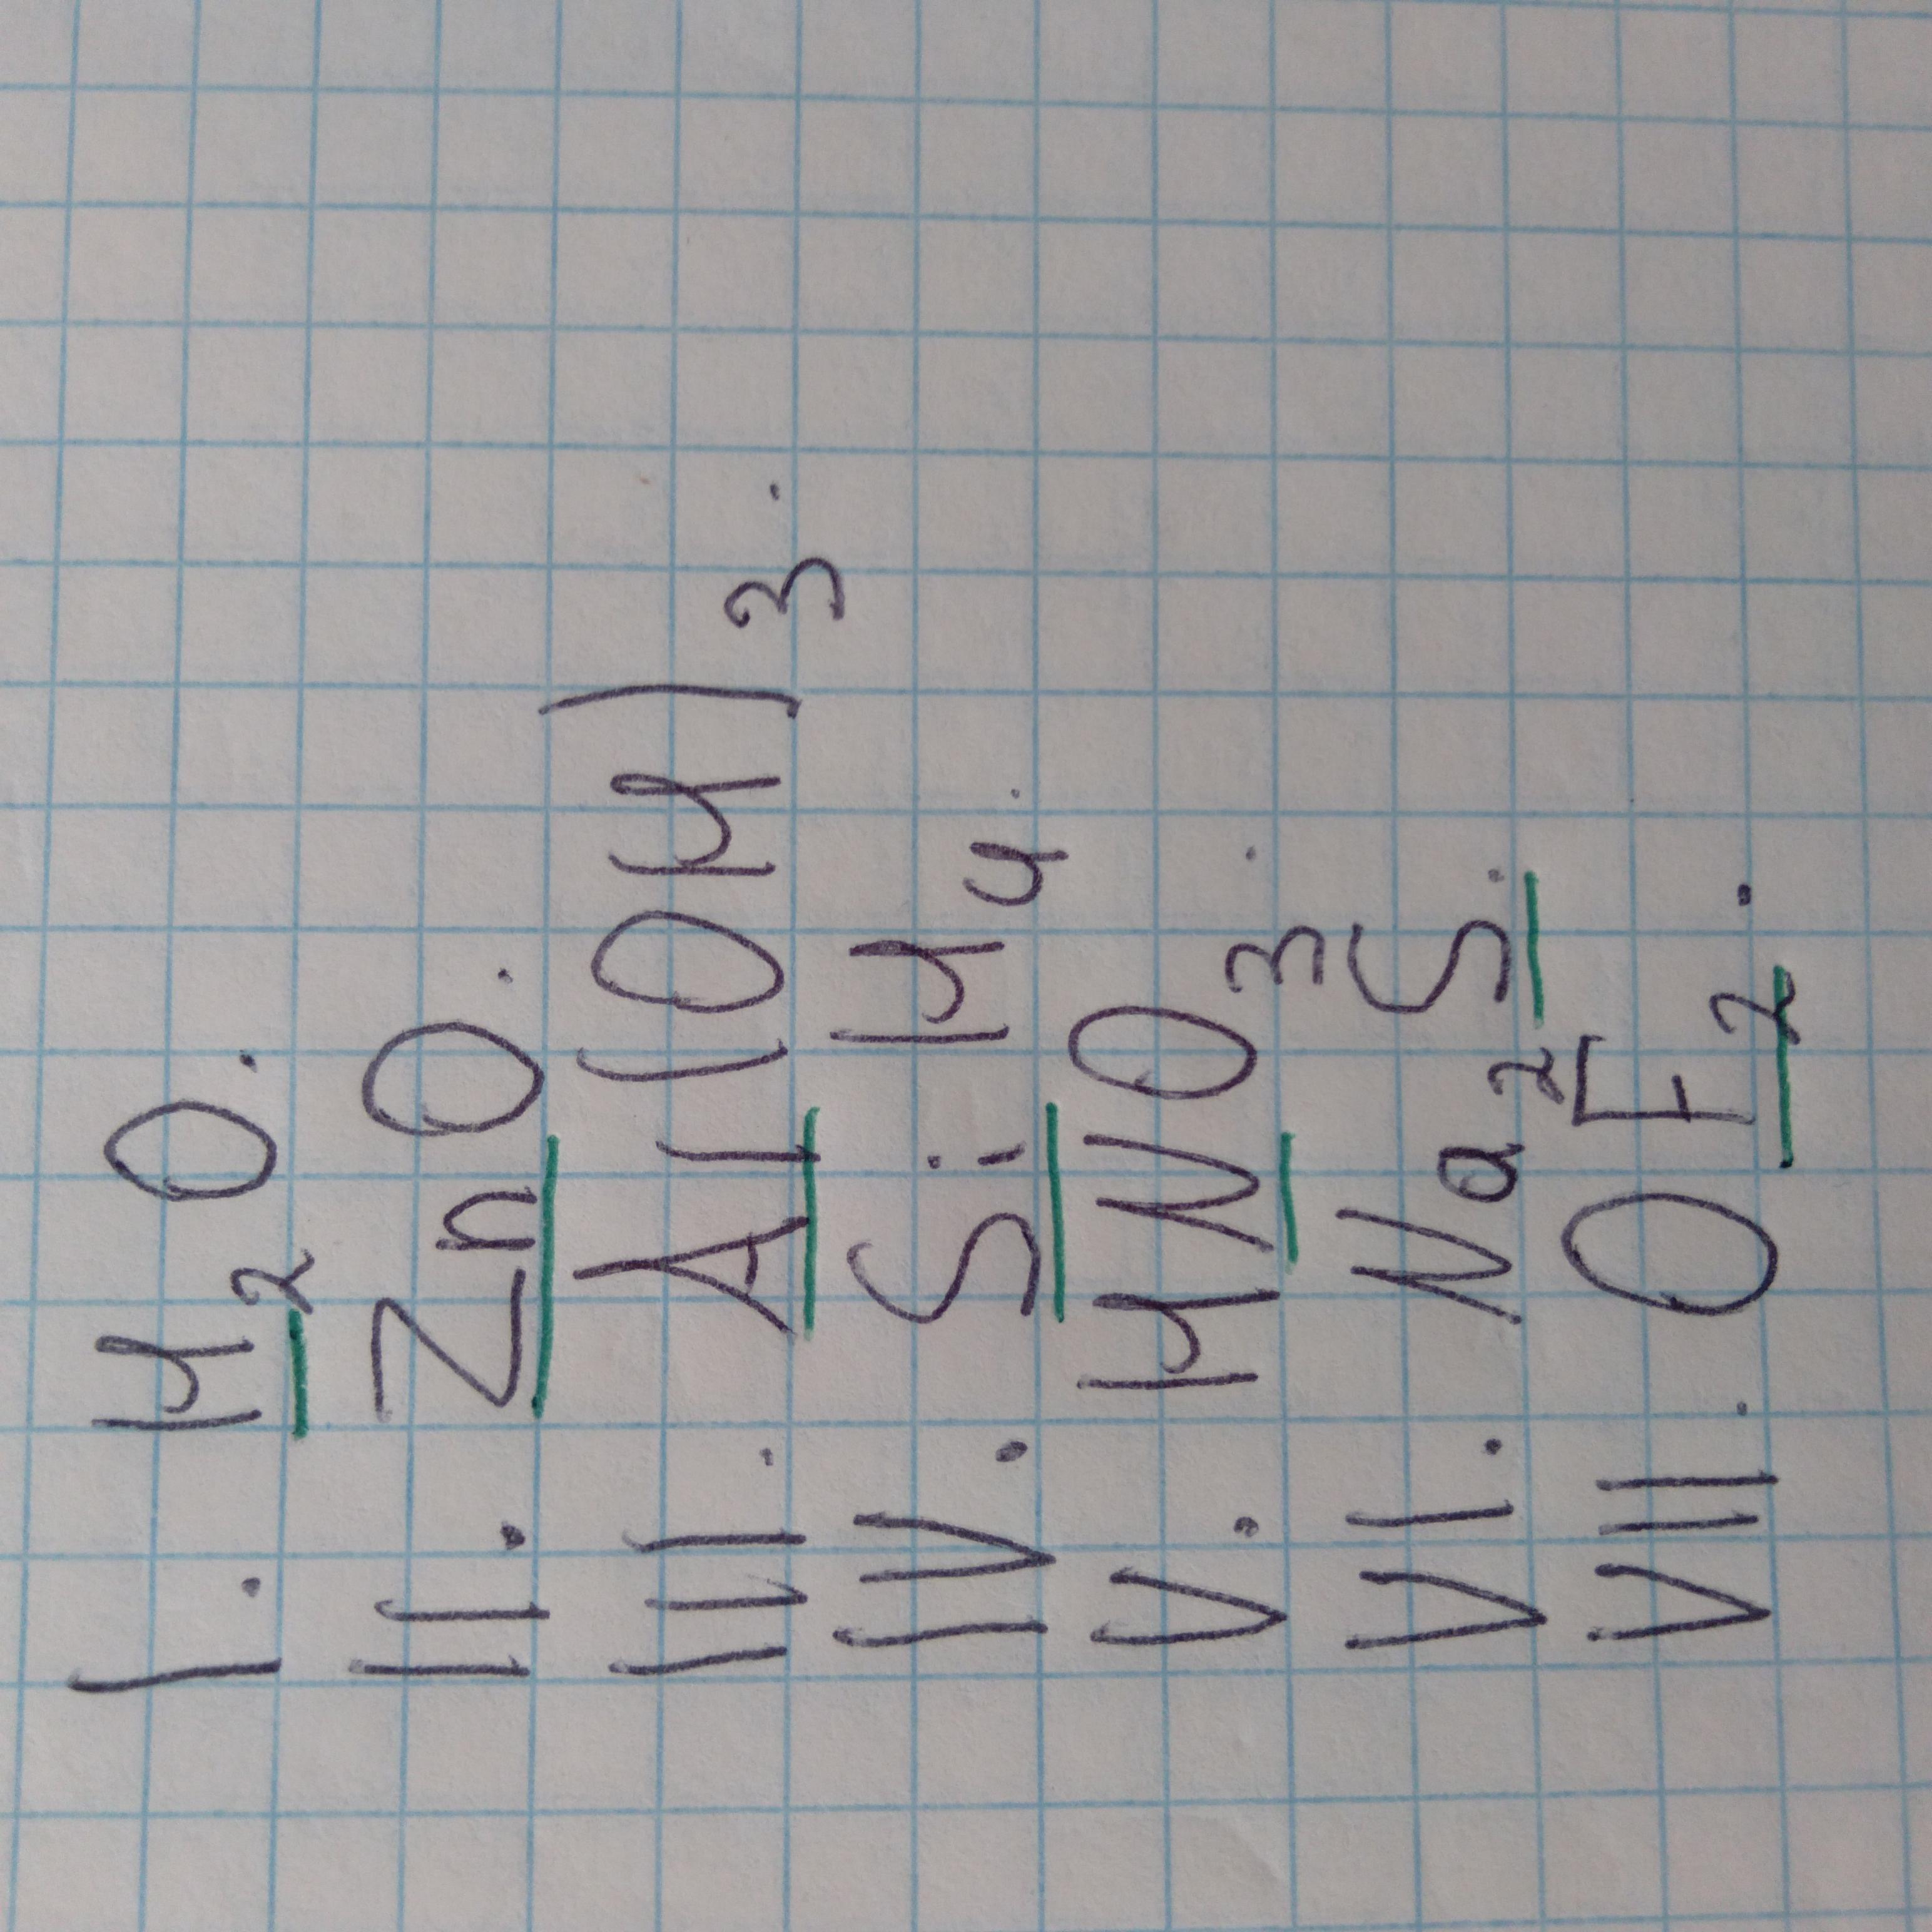 I. H₂O.
II. ZnO.
III. Al(OH)₃.
IV. SiH₄.
V. HNO₃.
VI. Na₂S.
VII. OF₂.